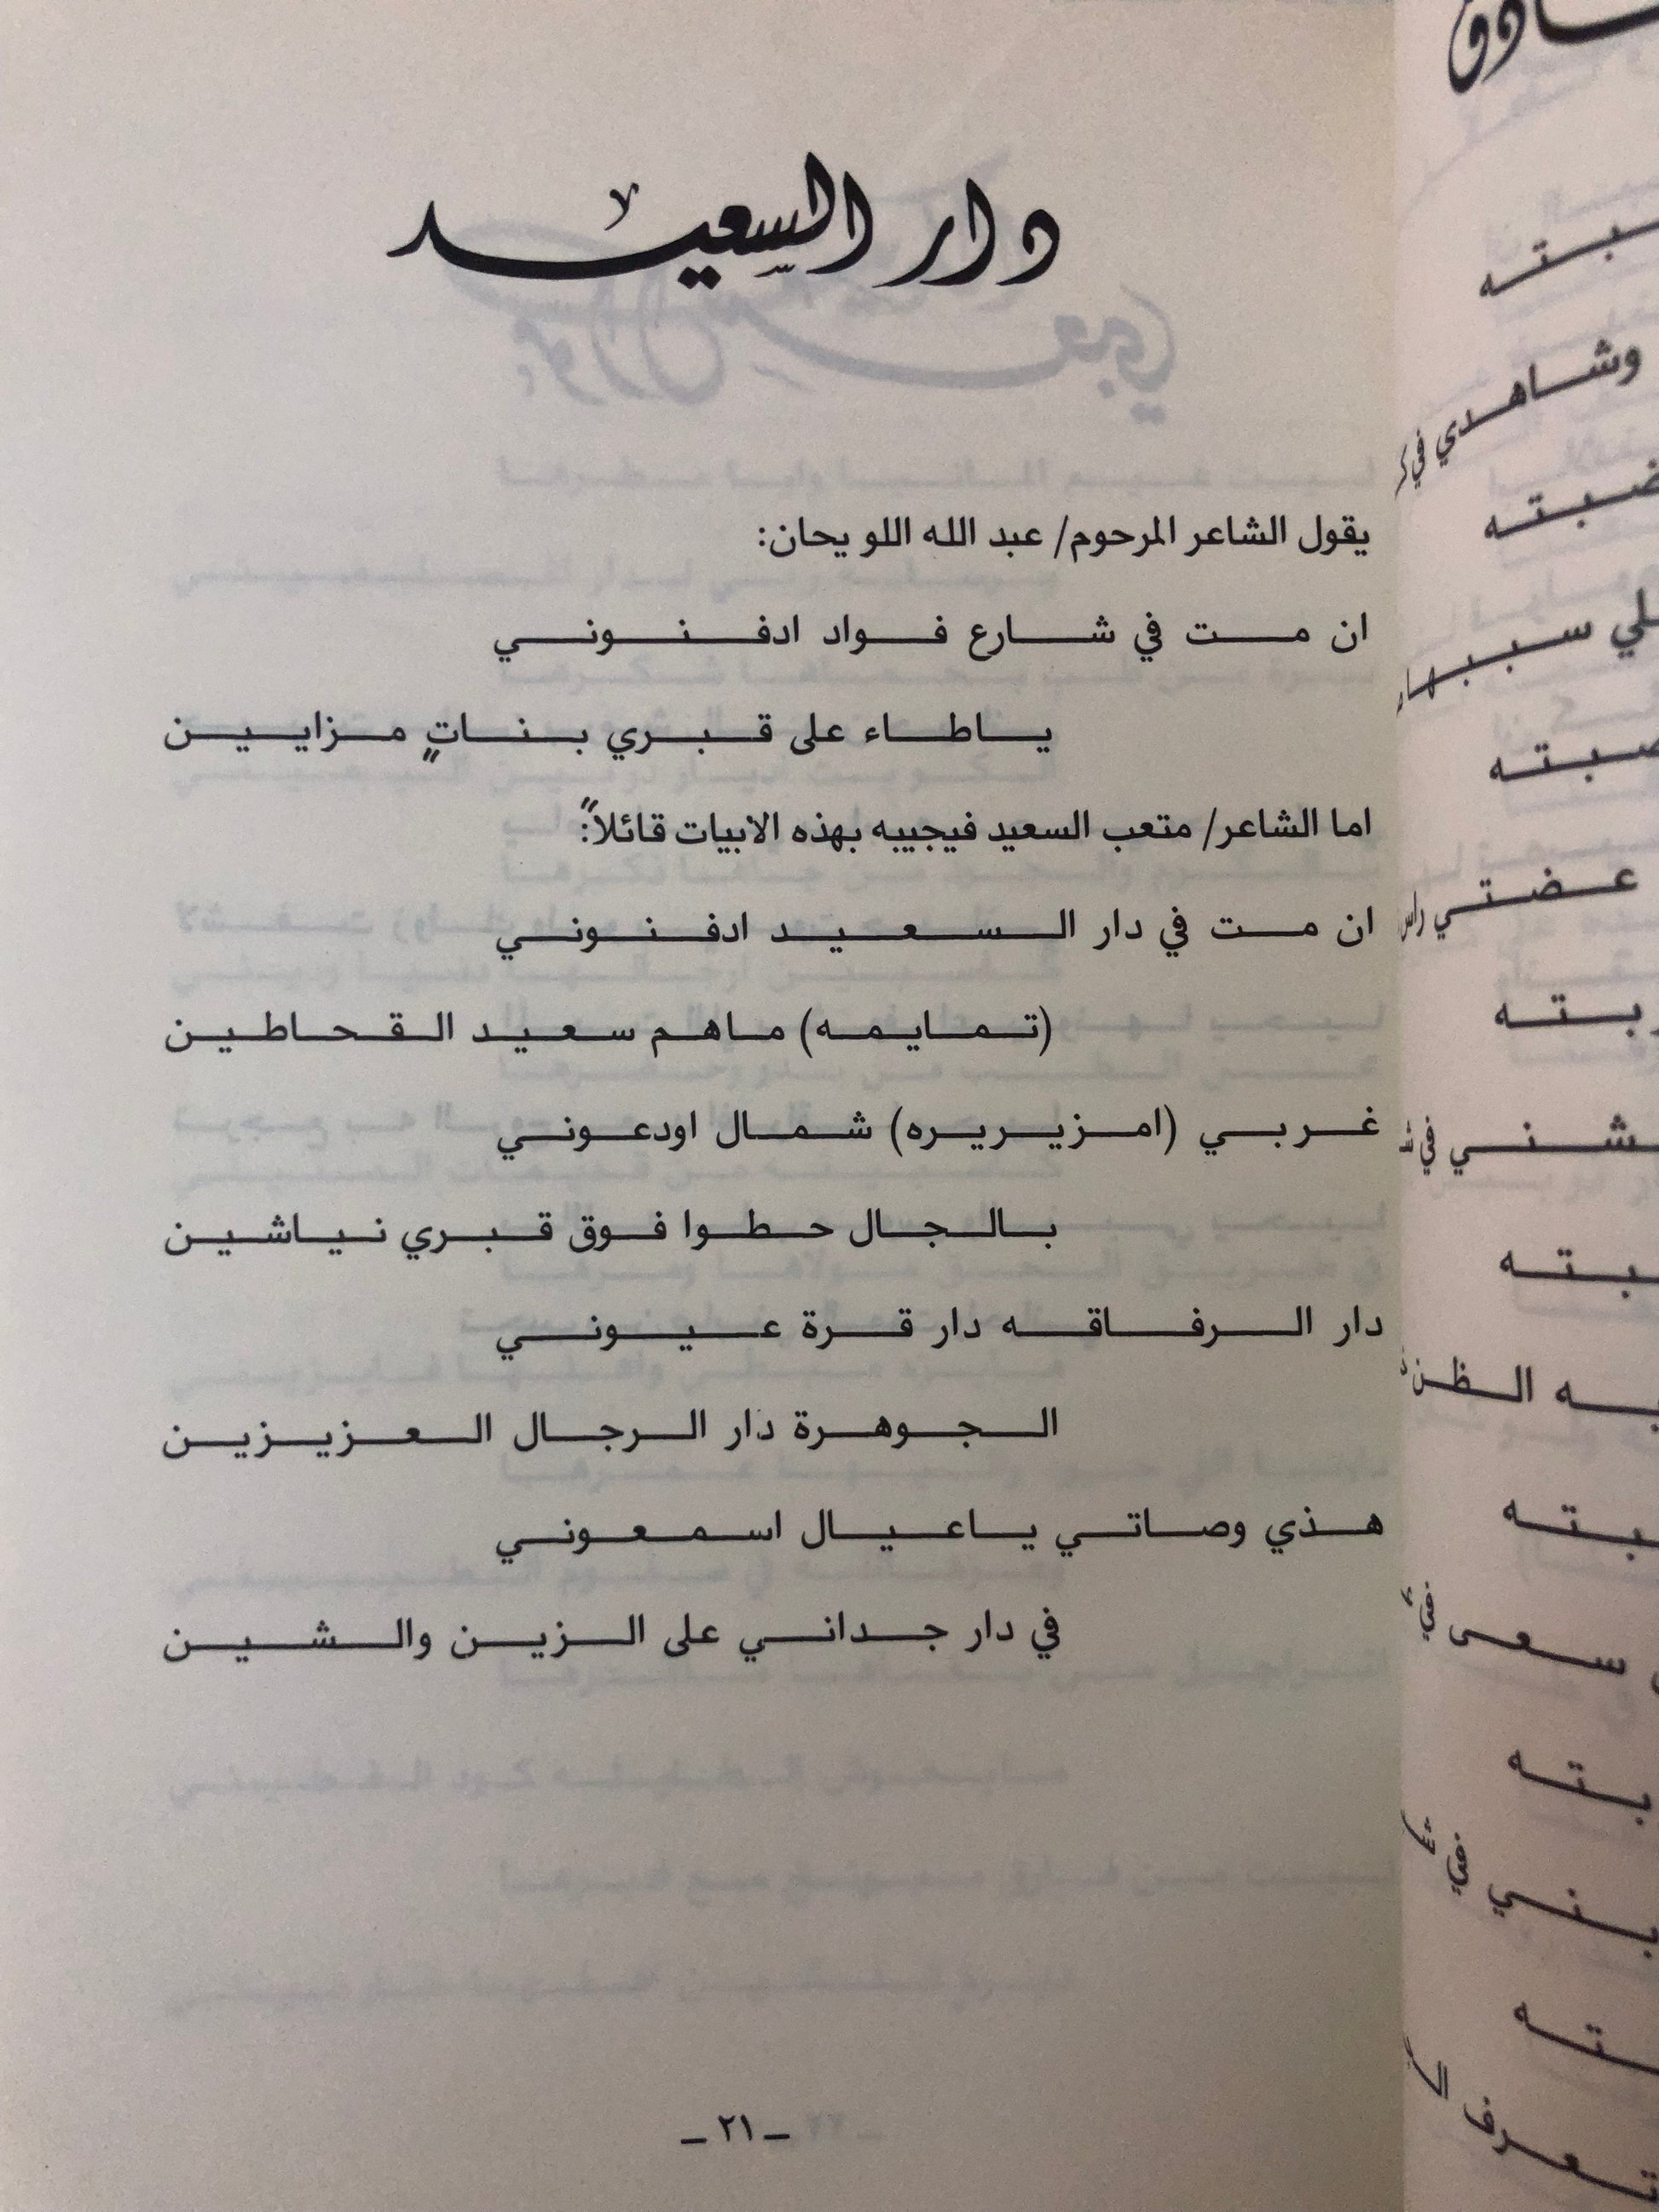 دار السعيد
يقول الشاعر المرحوم/ عبد الله اللو يحان:
ان مت في شارع فواد ادفنوني
ياطاء على قبري بناتٍ مزايين
اما الشاعر/ متعب السعيد فيجيبه بهذه الابيات قائلاً:
ان مت في دار السعيد ادفنوني
(تمايمه) ماهم سعيد القحاطين
غربي (امزيريره) شمال اودعوني
بالجال حطوا فوق قبري نياشين
دار الرفاقه دار قرة عيوني
الجوهرة دار الرجال العزيزين
هذي وصاتي ياعيال اسمعوني
في دار جداني على الزين والشين
ـ ٢١ ـ
وشاهدي في
عضتي راس